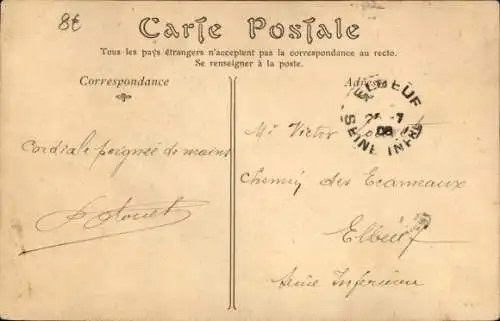 8€
Carte Postale
Tous les pays étrangers n'acceptent pas la correspondance au recto.
Se renseigner à la poste.
Correspondance
Cordiale poignée de mains
Adresse
ELBEUF
26 -7
08
SEINE INFRE
Mr Victor
Chemin des Ecameaux
Elbeuf
Seine Inférieure